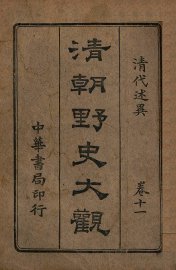 清代述異　卷十一
清朝野史大觀
中華書局印行